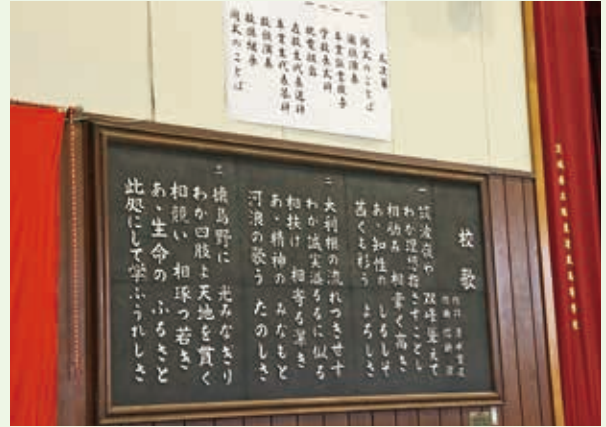 式次第
開式のことば
卒業証書授与
学校長式辞
祝電披露
在校生代表送辞
卒業生代表答辞
閉式のことば
校歌
作詞
作曲
一 筑波嶺や 双峰聳えて
わが理想指さすごとし
相励み 高き
あゝ知性の しるしぞ
よろしさ
二 大利根の流れつきせず
わが誠実溢るるに似る
相扶け 相寄る篤き
あゝ精神の みなもと
河浪の歌う たのしさ
三 猿島野に 光みなぎり
わが四肢よ天地を貫く
相競い 相琢つ若き
あゝ生命の ふるさと
此処にして学ぶうれしさ
茨城県立 高等学校